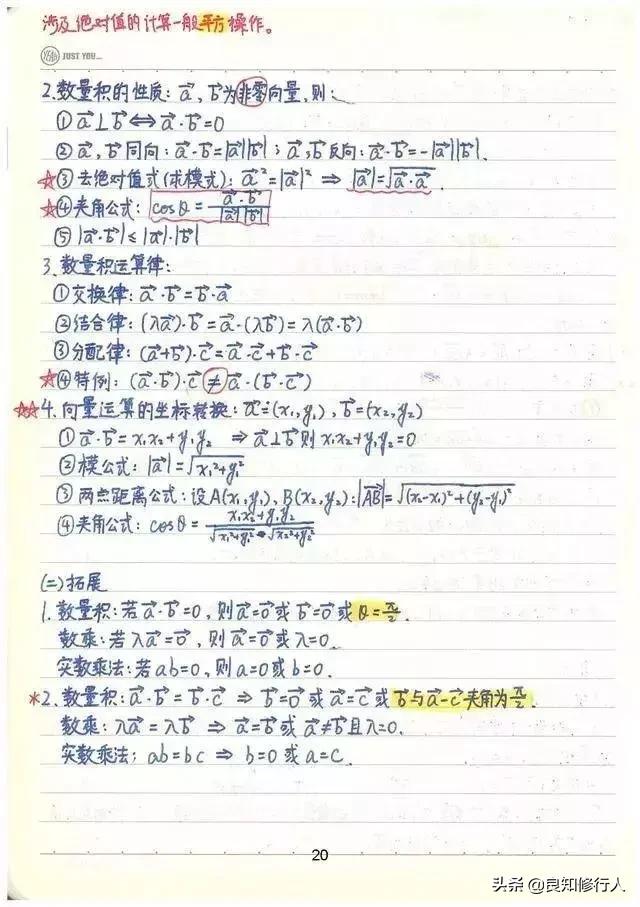 涉及绝对值的计算一般平方操作。
JUST YOU...
2.数量积的性质: a⃗, b⃗为非零向量,则:
① a⃗⊥b⃗ ⟺ a⃗·b⃗=0
② a⃗, b⃗同向: a⃗·b⃗=|a⃗||b⃗| ; a⃗,b⃗反向: a⃗·b⃗=-|a⃗||b⃗|.
☆③去绝对值式(求模式): a⃗²=|a⃗|² ⇒ |a⃗|=√(a⃗·a⃗)
☆④夹角公式: cosθ=(a⃗·b⃗)/(|a⃗||b⃗|)
⑤ |a⃗·b⃗|≤|a⃗|·|b⃗|
3.数量积运算律:
①交换律: a⃗·b⃗=b⃗·a⃗
②结合律: (λa⃗)·b⃗=a⃗·(λb⃗)=λ(a⃗·b⃗)
③分配律: (a⃗+b⃗)·c⃗=a⃗·c⃗+b⃗·c⃗
☆④特例: (a⃗·b⃗)·c⃗≠a⃗·(b⃗·c⃗)
☆☆4.向量运算的坐标转换: a⃗=(x₁,y₁), b⃗=(x₂,y₂)
① a⃗·b⃗=x₁x₂+y₁y₂ ⇒ a⃗⊥b⃗则x₁x₂+y₁y₂=0
②模公式: |a⃗|=√(x₁²+y₁²)
③两点距离公式:设A(x₁,y₁), B(x₂,y₂): |AB⃗|=√((x₂-x₁)²+(y₂-y₁)²)
④夹角公式: cosθ=(x₁x₂+y₁y₂)/(√(x₁²+y₁²)·√(x₂²+y₂²))
(二)拓展
1.数量积:若a⃗·b⃗=0,则a⃗=0⃗或b⃗=0⃗或θ=π/2.
数乘:若λa⃗=0⃗,则a⃗=0⃗或λ=0.
实数乘法:若ab=0,则a=0或b=0.
*2.数量积: a⃗·b⃗=b⃗·c⃗ ⇒ b⃗=0⃗或a⃗=c⃗或b⃗与a⃗-c⃗夹角为π/2.
数乘: λa⃗=λb⃗ ⇒ a⃗=b⃗或a⃗≠b⃗且λ=0.
实数乘法: ab=bc ⇒ b=0或a=c.
20
头条@良知修行人